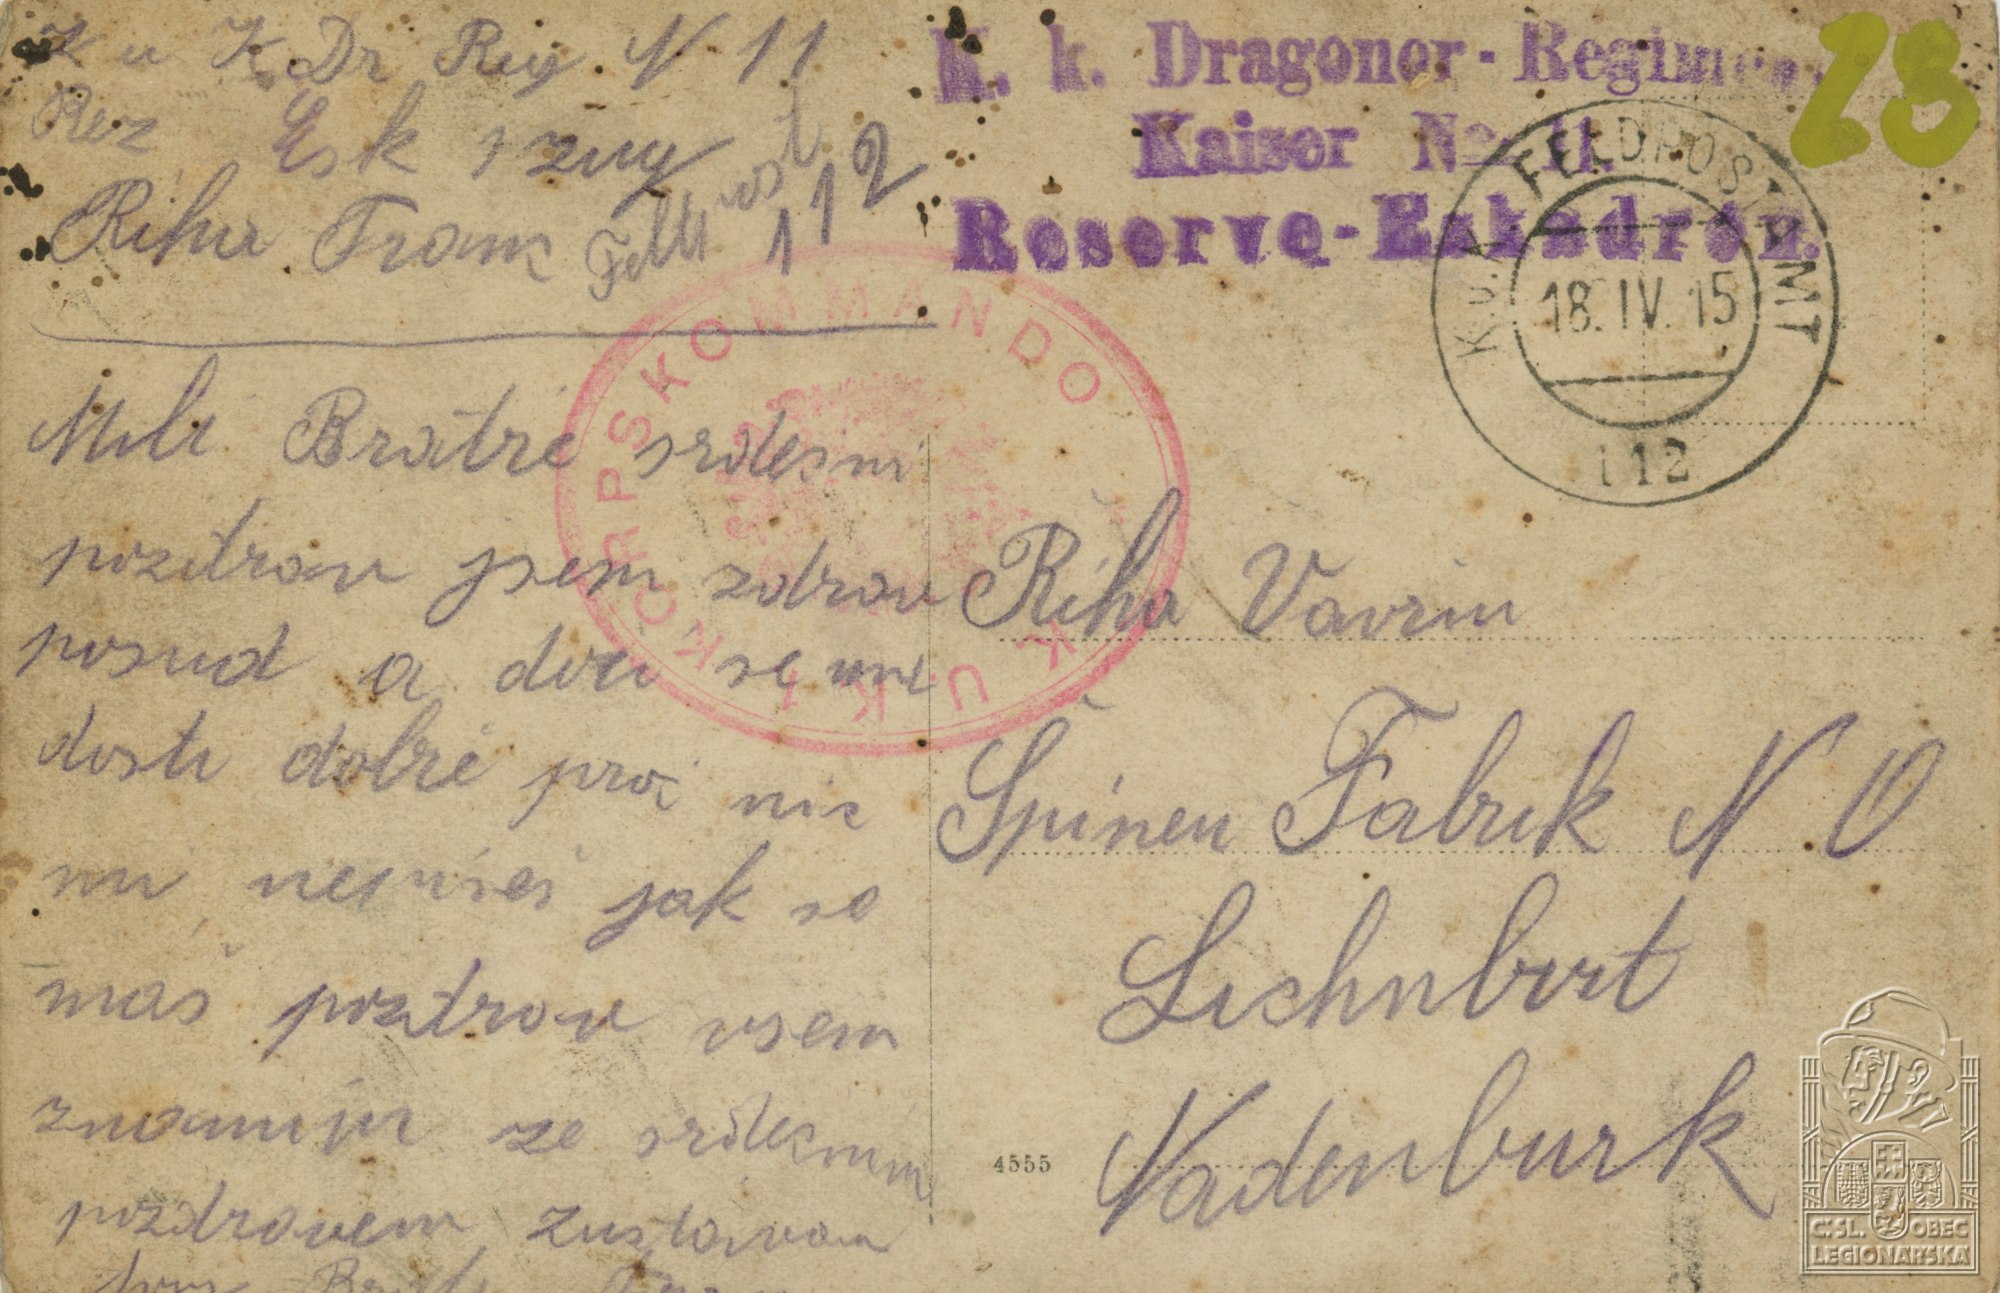 K u K. Dr Reg. N 11
Rez. Esk 1 zug
Řiha Frank Feldpost 112
K. k. Dragoner-Regiment
Kaiser No 11.
Reserve-Eskadron.
28
K.u.K. FELDPOSTAMT
18.IV.15
112
K.U.K. 1. KORPSKOMMANDO
Milí Bratře srdesni
pozdrav jsem zdrav
posud a daři se mi
dosti dobře proč nic
mi nepíšeš jak se
máš pozdrav všem
znamim ze srdesnim
pozdravem zustávam
Bratr
Řiha Vavřin
Špinen Fabrik N O
Lichnburt
Vadenburk
4555
Č.SL. OBEC
LEGIONÁŘSKÁ